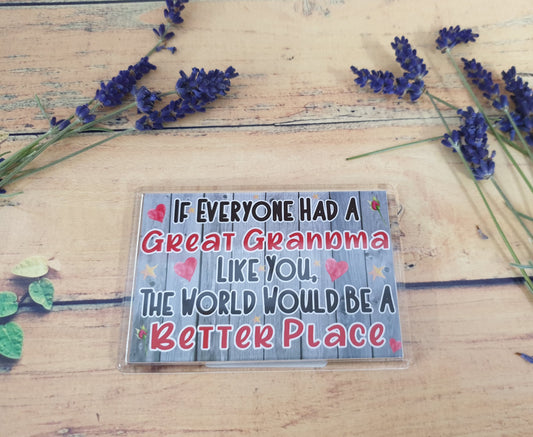 If Everyone Had A
Great Grandma
Like You,
The World Would Be A
Better Place